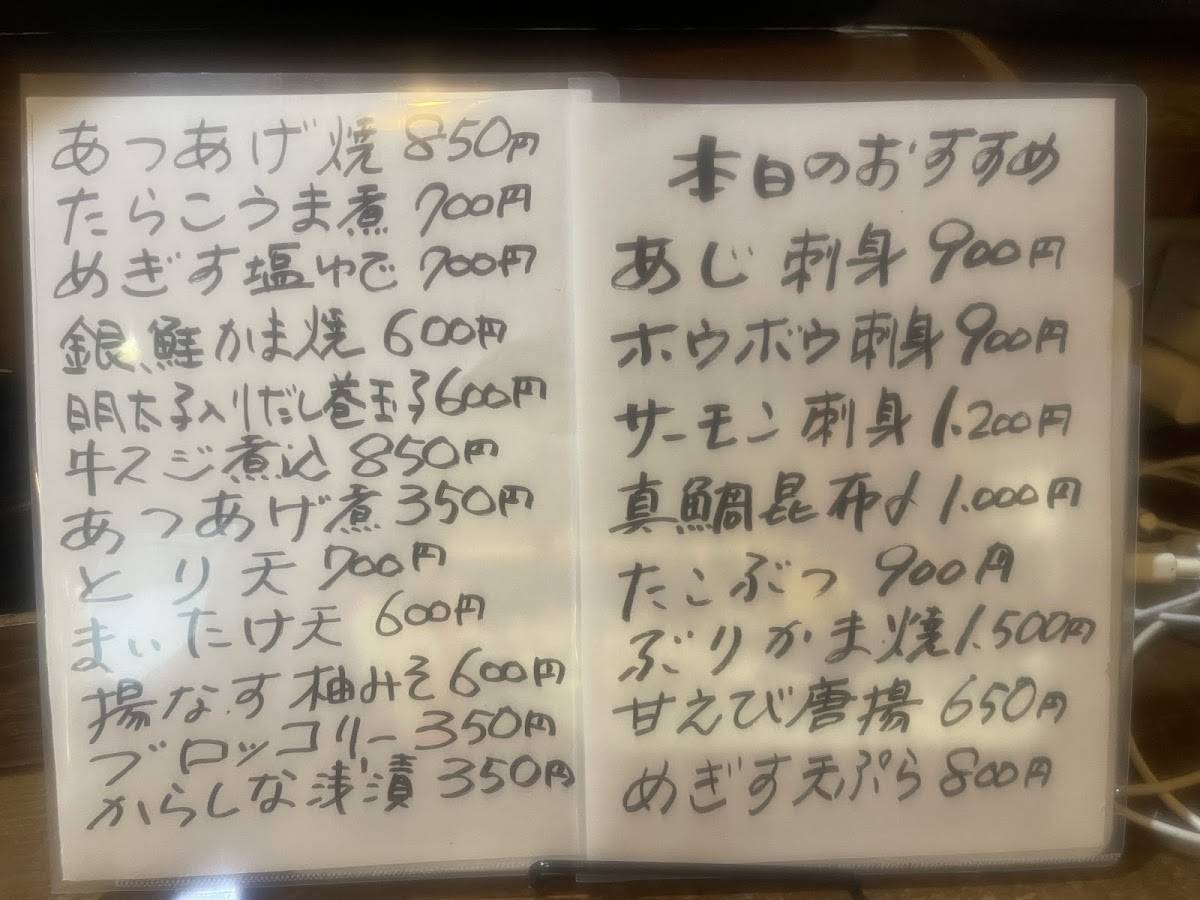 本日のおすすめ
あじ刺身 900円
ホウボウ刺身 900円
サーモン刺身 1.200円
真鯛昆布〆 1.000円
たこぶつ 900円
ぶりかま焼 1.500円
甘えび唐揚 650円
めぎす天ぷら 800円
あつあげ焼 850円
たらこうま煮 700円
めぎす塩ゆで 700円
銀鮭かま焼 600円
明太子入りだし巻玉子 600円
牛スジ煮込 850円
あつあげ煮 350円
とり天 700円
まいたけ天 600円
揚なす柚みそ 600円
ブロッコリー 350円
からしな浅漬 350円